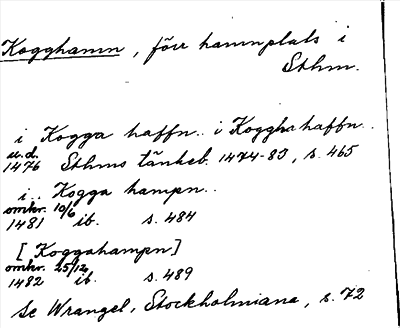 Kogghamn, förr hamnplats i
Sthm.
i Kogga haffn.. i Kogghahaffn..
u.d.
1476 Sthms tänkeb. 1474-83, s. 465
i.. Kogga hampn..
omkr. 10/6
1481 ib. s. 484
[Koggahampn]
omkr. 25/12
1482 ib. s. 489
Se Wrangel, Stockholmiana, s. 72